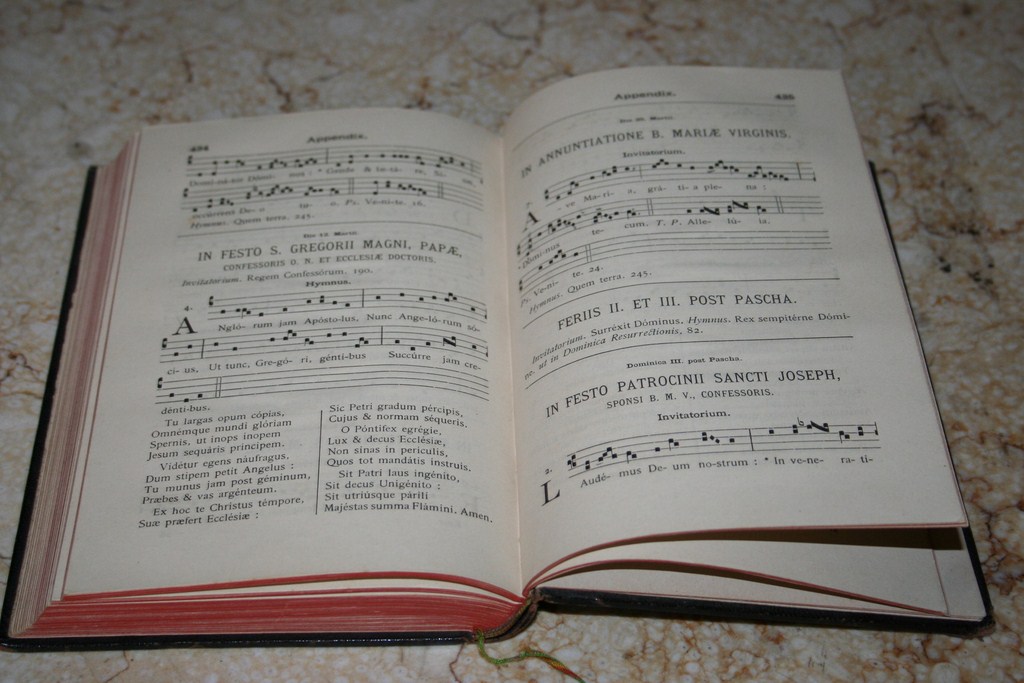 434
Appendix.
Domi-ni-um : * Gaude & lætáre,
occúrrens De-o tu-o. Ps. Ve-ni-te. 16.
Hymnus. Quem terra. 245.
Die 12. Martii.
IN FESTO S. GREGORII MAGNI, PAPÆ,
CONFESSORIS O. N. ET ECCLESIÆ DOCTORIS.
Invitatorium. Regem Confessórum. 190.
Hymnus.
4.
A Ngló- rum jam Apósto-lus, Nunc Ange-ló-rum só-
ci- us, Ut tunc, Gre-gó- ri, géntibus Succúrre jam cre-
déntibus.
Tu largas opum cópias,
Omnémque mundi glóriam
Spernis, ut inops ínopem
Jesum sequáris príncipem.
Vidétur egens náufragus,
Dum stipem petit Angelus :
Tu munus jam post géminum,
Præbes & vas argénteum.
Ex hoc te Christus témpore,
Suæ præfert Ecclésiæ :
Sic Petri gradum pércipis,
Cujus & normam séqueris.
O Póntifex egrégie,
Lux & decus Ecclésiæ,
Non sinas in perículis,
Quos tot mandátis ínstruis.
Sit Patri laus ingénito,
Sit decus Unigénito :
Sit utriúsque párili
Majéstas summa Flámini. Amen.
Appendix.
435
Die 25. Martii.
IN ANNUNTIATIONE B. MARIÆ VIRGINIS.
Invitatorium.
A -ve Ma-ri- a, grá- ti-a ple-na :
* Dóminus te- cum. T. P. Alle- lú- ia.
Ps. Ve-ni- te. 24.
Hymnus. Quem terra. 245.
FERIIS II. ET III. POST PASCHA.
Invitatorium. Surréxit Dóminus. Hymnus. Rex sempitérne Dómi-
ne. ut in Dominica Resurrectiónis, 82.
Dominica III. post Pascha.
IN FESTO PATROCINII SANCTI JOSEPH,
SPONSI B. M. V., CONFESSORIS.
Invitatorium.
2.
L Audé- mus De- um no-strum : * In ve-ne- ra-ti-